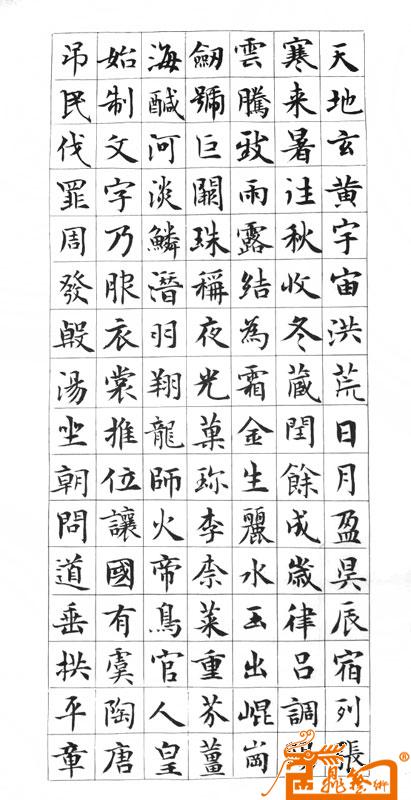 天地玄黄宇宙洪荒日月盈昃辰宿列張
寒来暑往秋收冬蔵閏餘成歲律吕調
雲騰致雨露結為霜金生麗水玉出崐崗
劒號巨闕珠稱夜光菓珎李柰菜重芥薑
海醎河淡鱗潛羽翔龍師火帝鳥官人皇
始制文字乃服衣裳推位讓國有虞陶唐
弔民伐罪周發殷湯坐朝問道垂拱平章